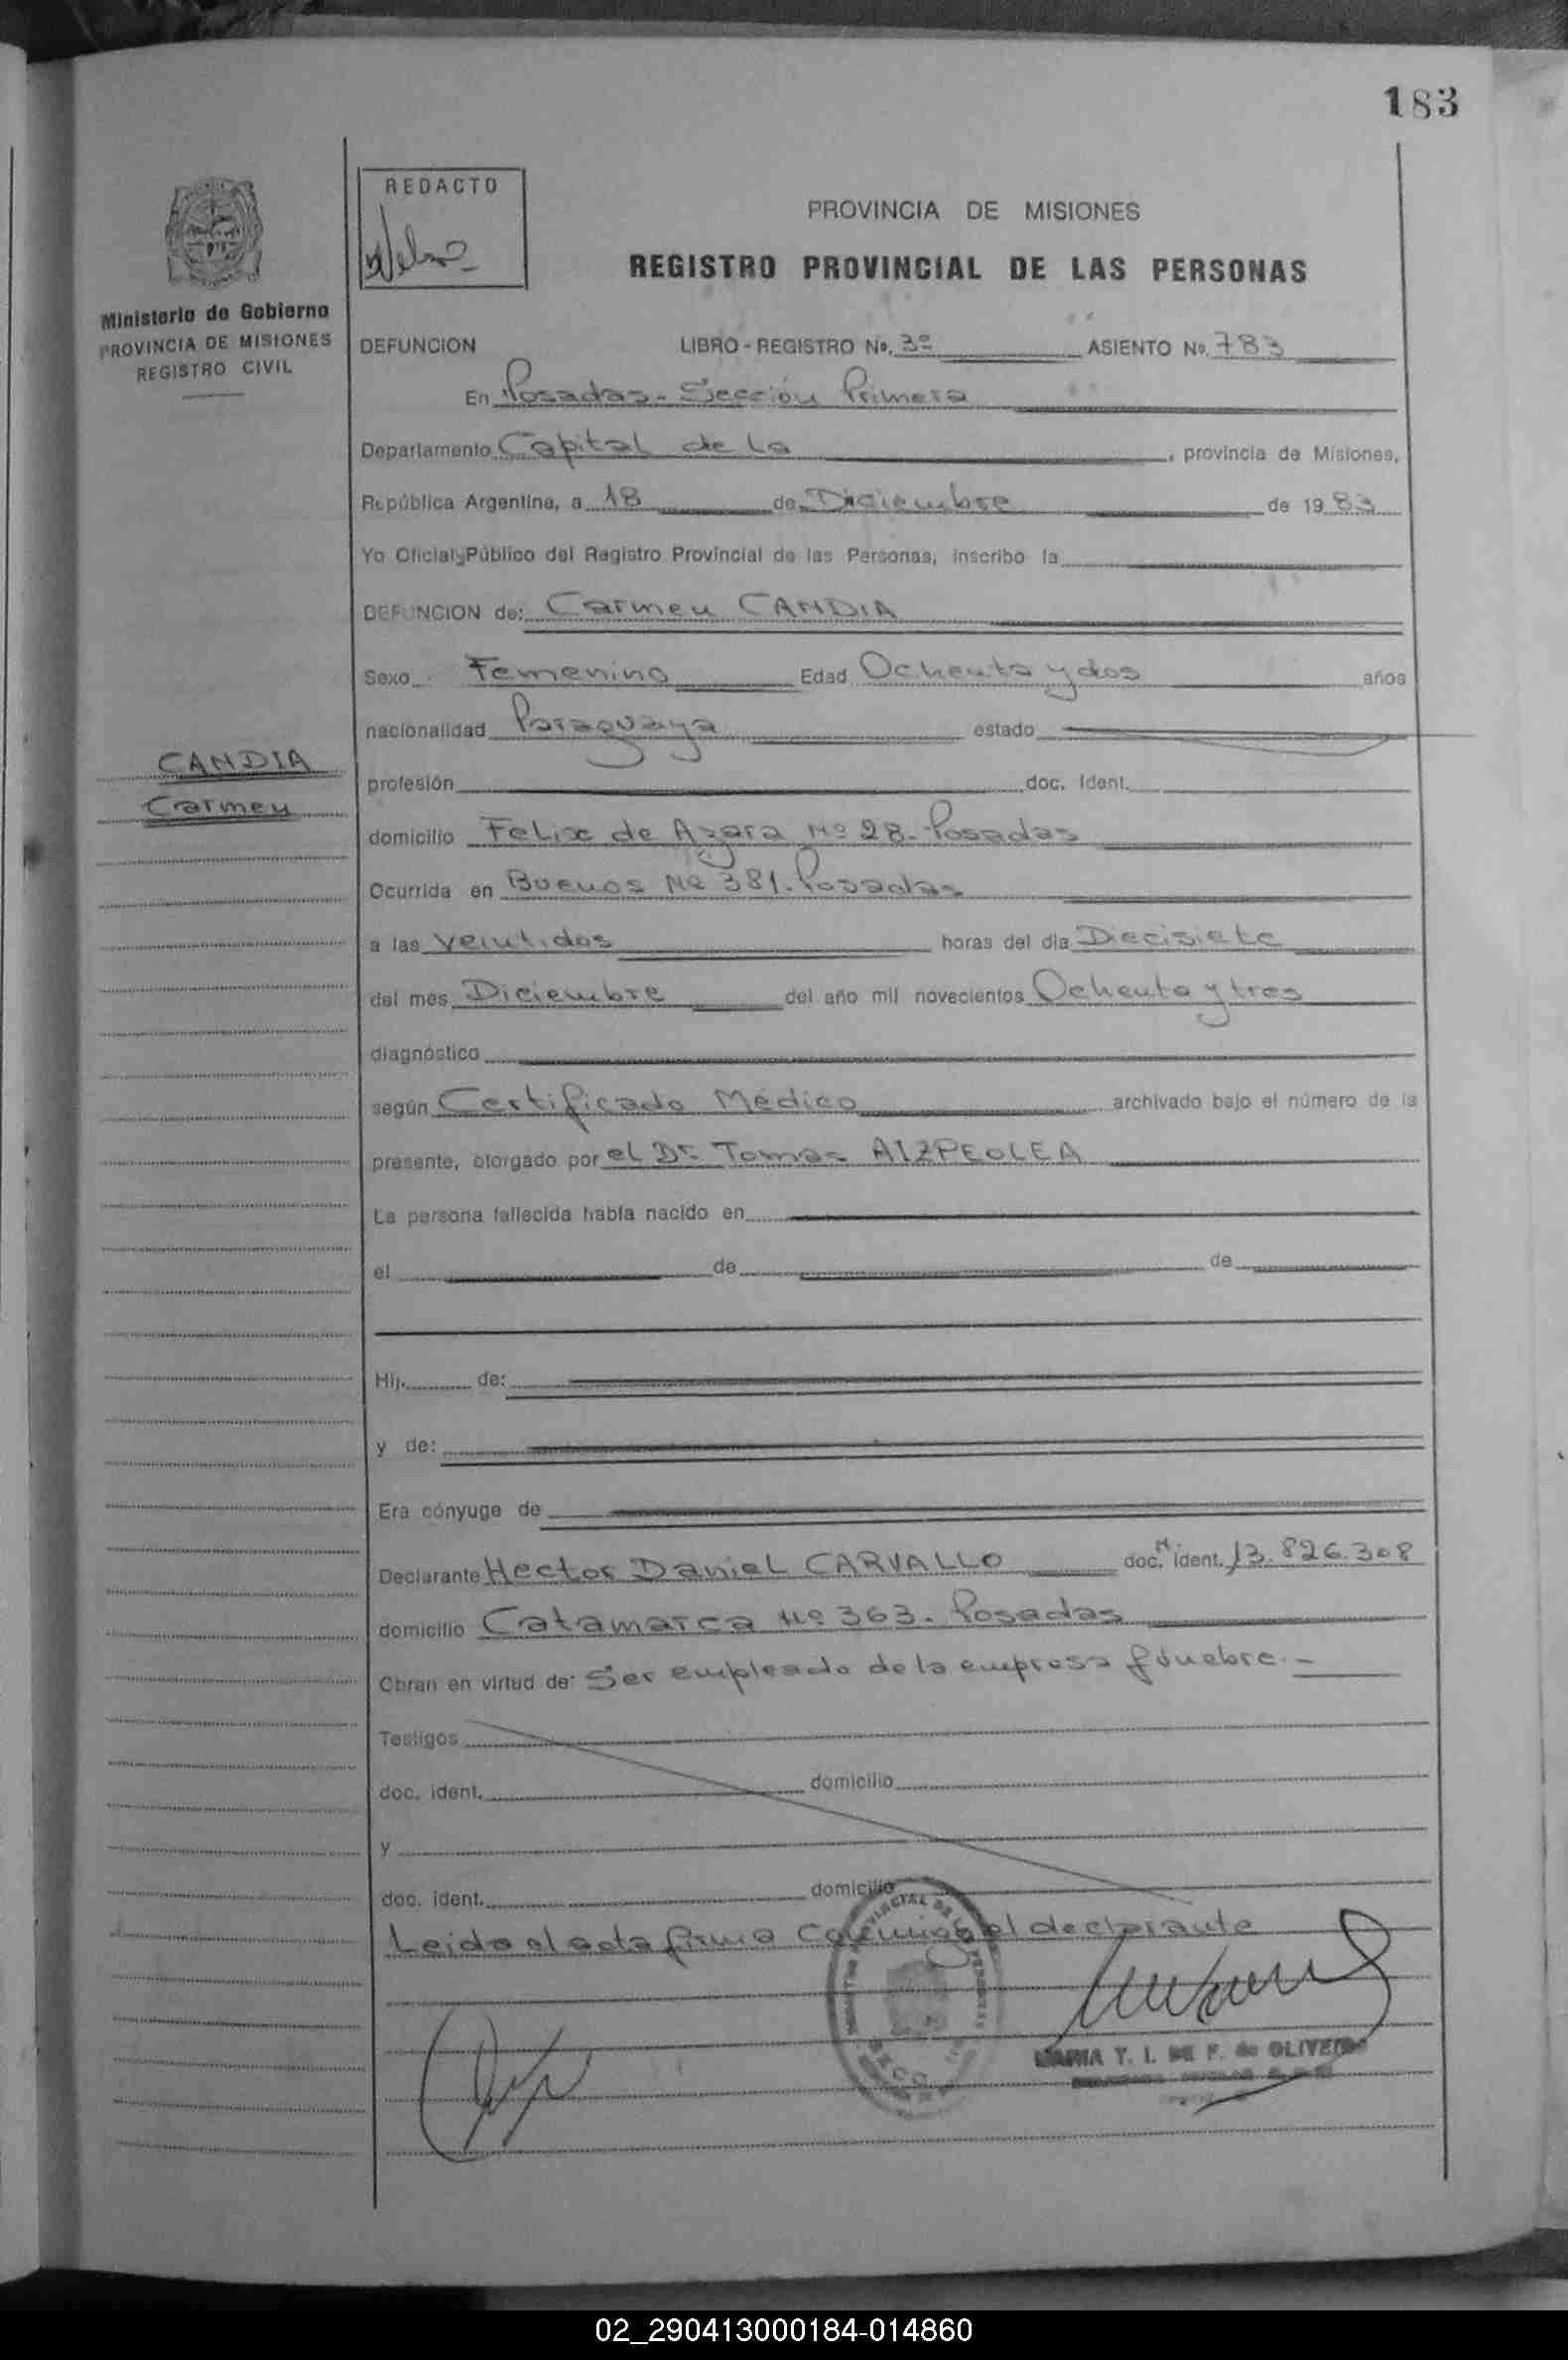 183
REDACTO
PROVINCIA DE MISIONES
REGISTRO PROVINCIAL DE LAS PERSONAS
Ministerio de Gobierno
PROVINCIA DE MISIONES
REGISTRO CIVIL
DEFUNCION LIBRO - REGISTRO No. 3º ASIENTO No. 783
En Posadas - Sección Primera
Departamento Capital de la , provincia de Misiones,
República Argentina, a 18 de Diciembre de 1983
Yo Oficial Público del Registro Provincial de las Personas, inscribo la
DEFUNCION de: Carmen CANDIA
Sexo Femenino Edad Ochenta y dos años
nacionalidad Paraguaya estado
CANDIA
Carmen
profesión doc. ident.
domicilio Felix de Azara Nº 28. Posadas
Ocurrida en Buenos Nº 381. Posadas
a las veintidos horas del día Diecisiete
del mes Diciembre del año mil novecientos Ochenta y tres
diagnóstico
según Certificado Médico archivado bajo el número de la
presente, otorgado por el Dr. Tomas AIZPEOLEA
La persona fallecida había nacido en
el de de
Hij. de:
y de:
Era cónyuge de
Declarante Hector Daniel CARVALLO doc. ident. 13.826.308
domicilio Catamarca Nº 363. Posadas
Obran en virtud de: Ser empleado de la empresa fúnebre.-
Testigos
doc. ident. domicilio
y
doc. ident. domicilio
Leida el acta firma conmigo el declarante
MARIA T. I. DE F. de OLIVEIRA
02_290413000184-014860